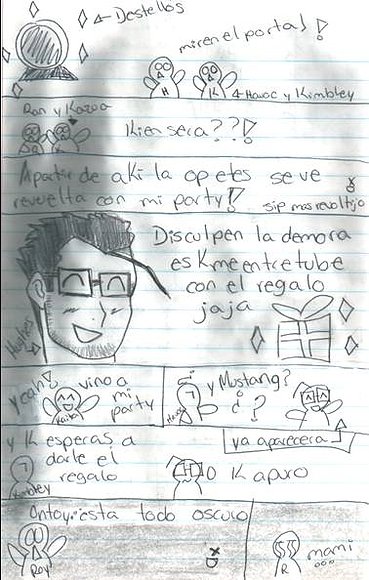 ← Destellos
miren el portal!
H K ← Havoc y Kimbley
Ran y Kazoa
R K
Kien sera???!
Apartir de aKi la op etes se ve
revuelta con mi party!!
sip mas revoltijo
Disculpen la demora
es K me entretube
con el regalo
jaja
Hughes
yeah! vino a
mi
party
Kaira
y Mustang?
¿?
Havoc
ya aparecera
y K esperas a
darle el
regalo
Kimbley
O K apuro
Ontoy? esta todo oscuro
Roy
xD
R
mami